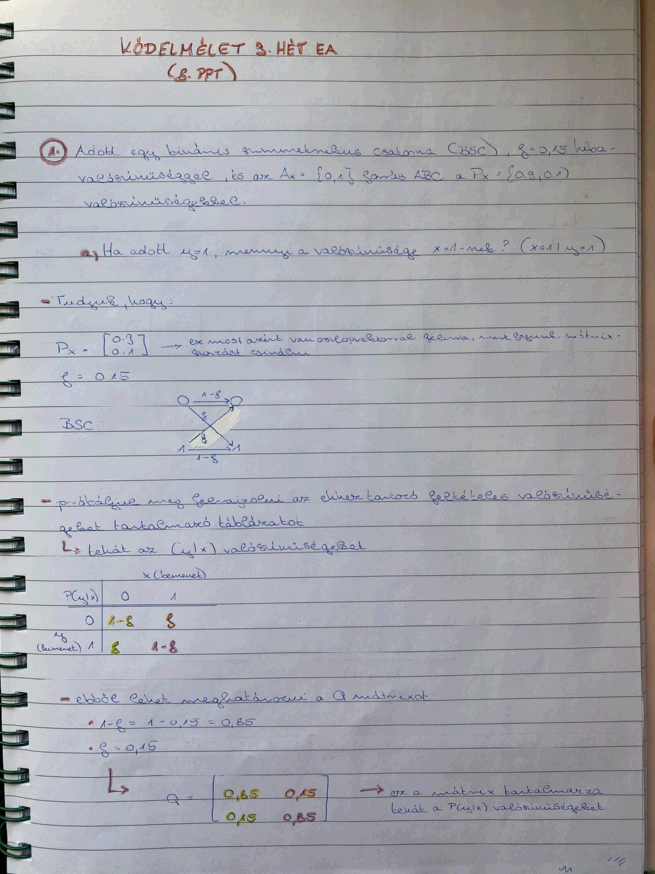 KÓDELMÉLET 9. HÉT EA
(8. PPT)
1. Adott egy bináris szimmetrikus csatorna (BSC), f=0,15 hiba-
valószínűséggel, és az Ax = {0,1} forrás ABC a Px = {0.9, 0.1}
valószínűségekkel.
a, Ha adott y=1, mennyi a valószínűsége x=1-nek? (x=1 | y=1)
- Tudjuk, hogy:
Px = [0.9 0.1] → ez most azért van oszlopvektorral felírva, mert fogunk mátrix-
szorzást csinálni
f = 0.15
BSC: 0 1-f 0
f
f
1 1-f 1
- próbáljuk meg felrajzolni az ehhez tartozó feltételes valószínűsé-
geket tartalmazó táblázatot
↳ tehát az (y|x) valószínűségeket
x (bemenet)
P(y|x) 0 1
0 1-f f
y
(kimenet) 1 f 1-f
- ebből lehet meghatározni a Q mátrixot
• 1-f = 1 - 0,15 = 0,85
• f = 0,15
↳ Q = [0,85 0,15 → ez a mátrix tartalmazza
0,15 0,85] tehát a P(y|x) valószínűségeket